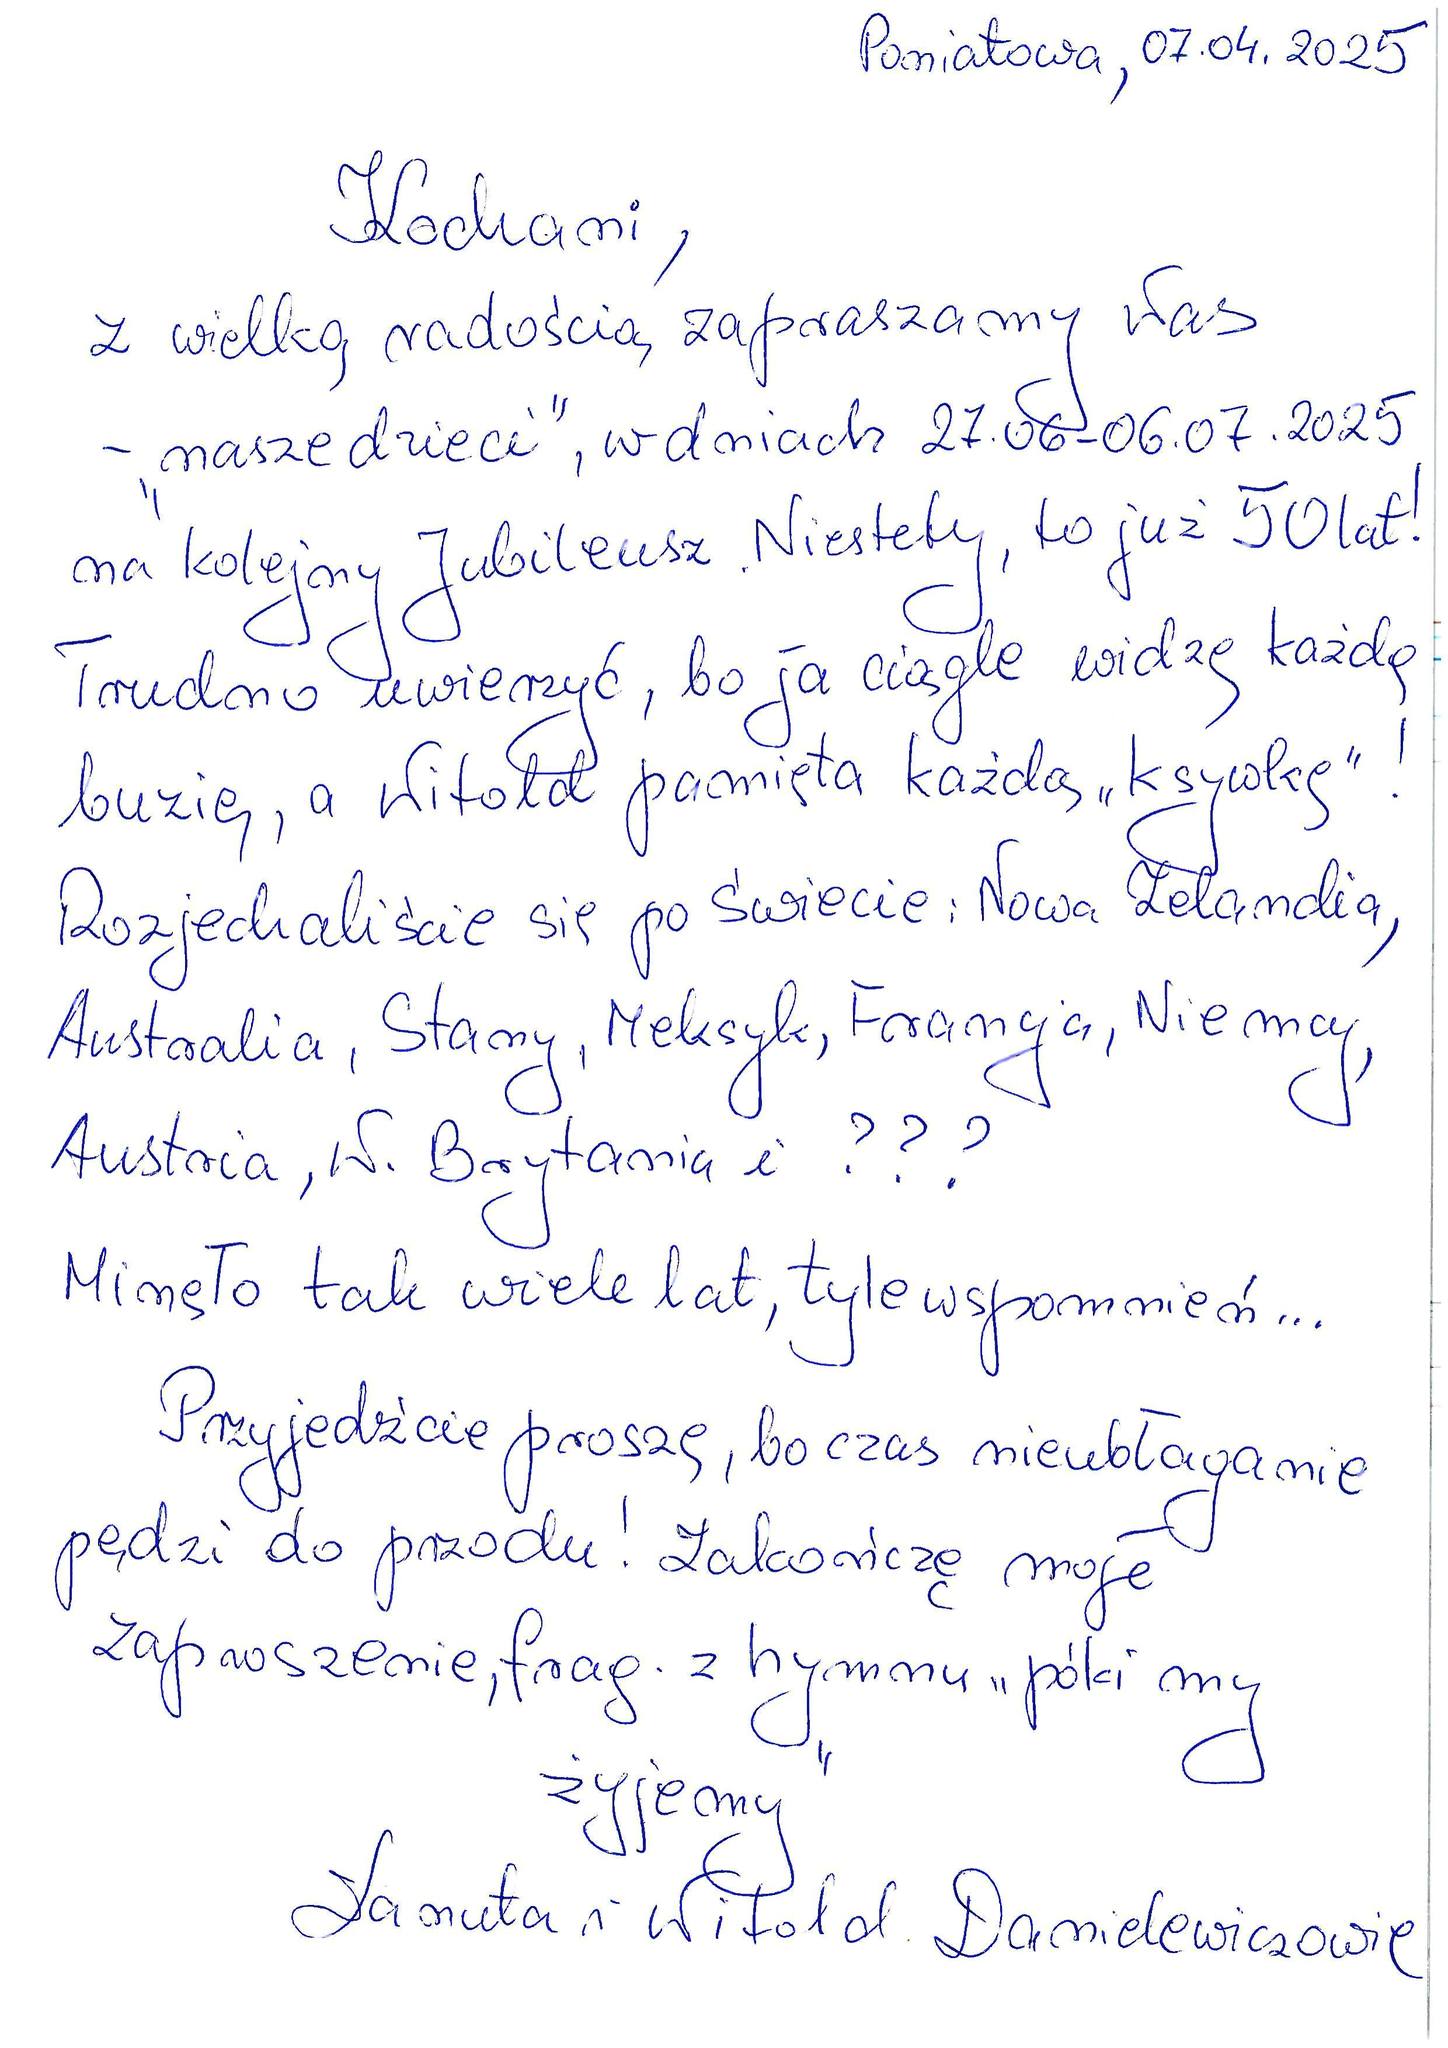 Poniatowa, 07.04.2025
Kochani,
z wielką radością zapraszamy Was
- „nasze dzieci”, w dniach 27.06-06.07.2025
na kolejny Jubileusz. Niestety, to już 50 lat!
Trudno uwierzyć, bo ja ciągle widzę każdą
buzię, a Witold pamięta każdą „ksywkę”!
Rozjechaliście się po świecie: Nowa Zelandia,
Australia, Stany, Meksyk, Francja, Niemcy,
Austria, W. Brytania i ???
Minęło tak wiele lat, tyle wspomnień...
Przyjedźcie proszę, bo czas nieubłaganie
pędzi do przodu! Zakończę moje
zaproszenie, frag. z hymnu „póki my
żyjemy”
Danuta i Witold Danielewiczowie